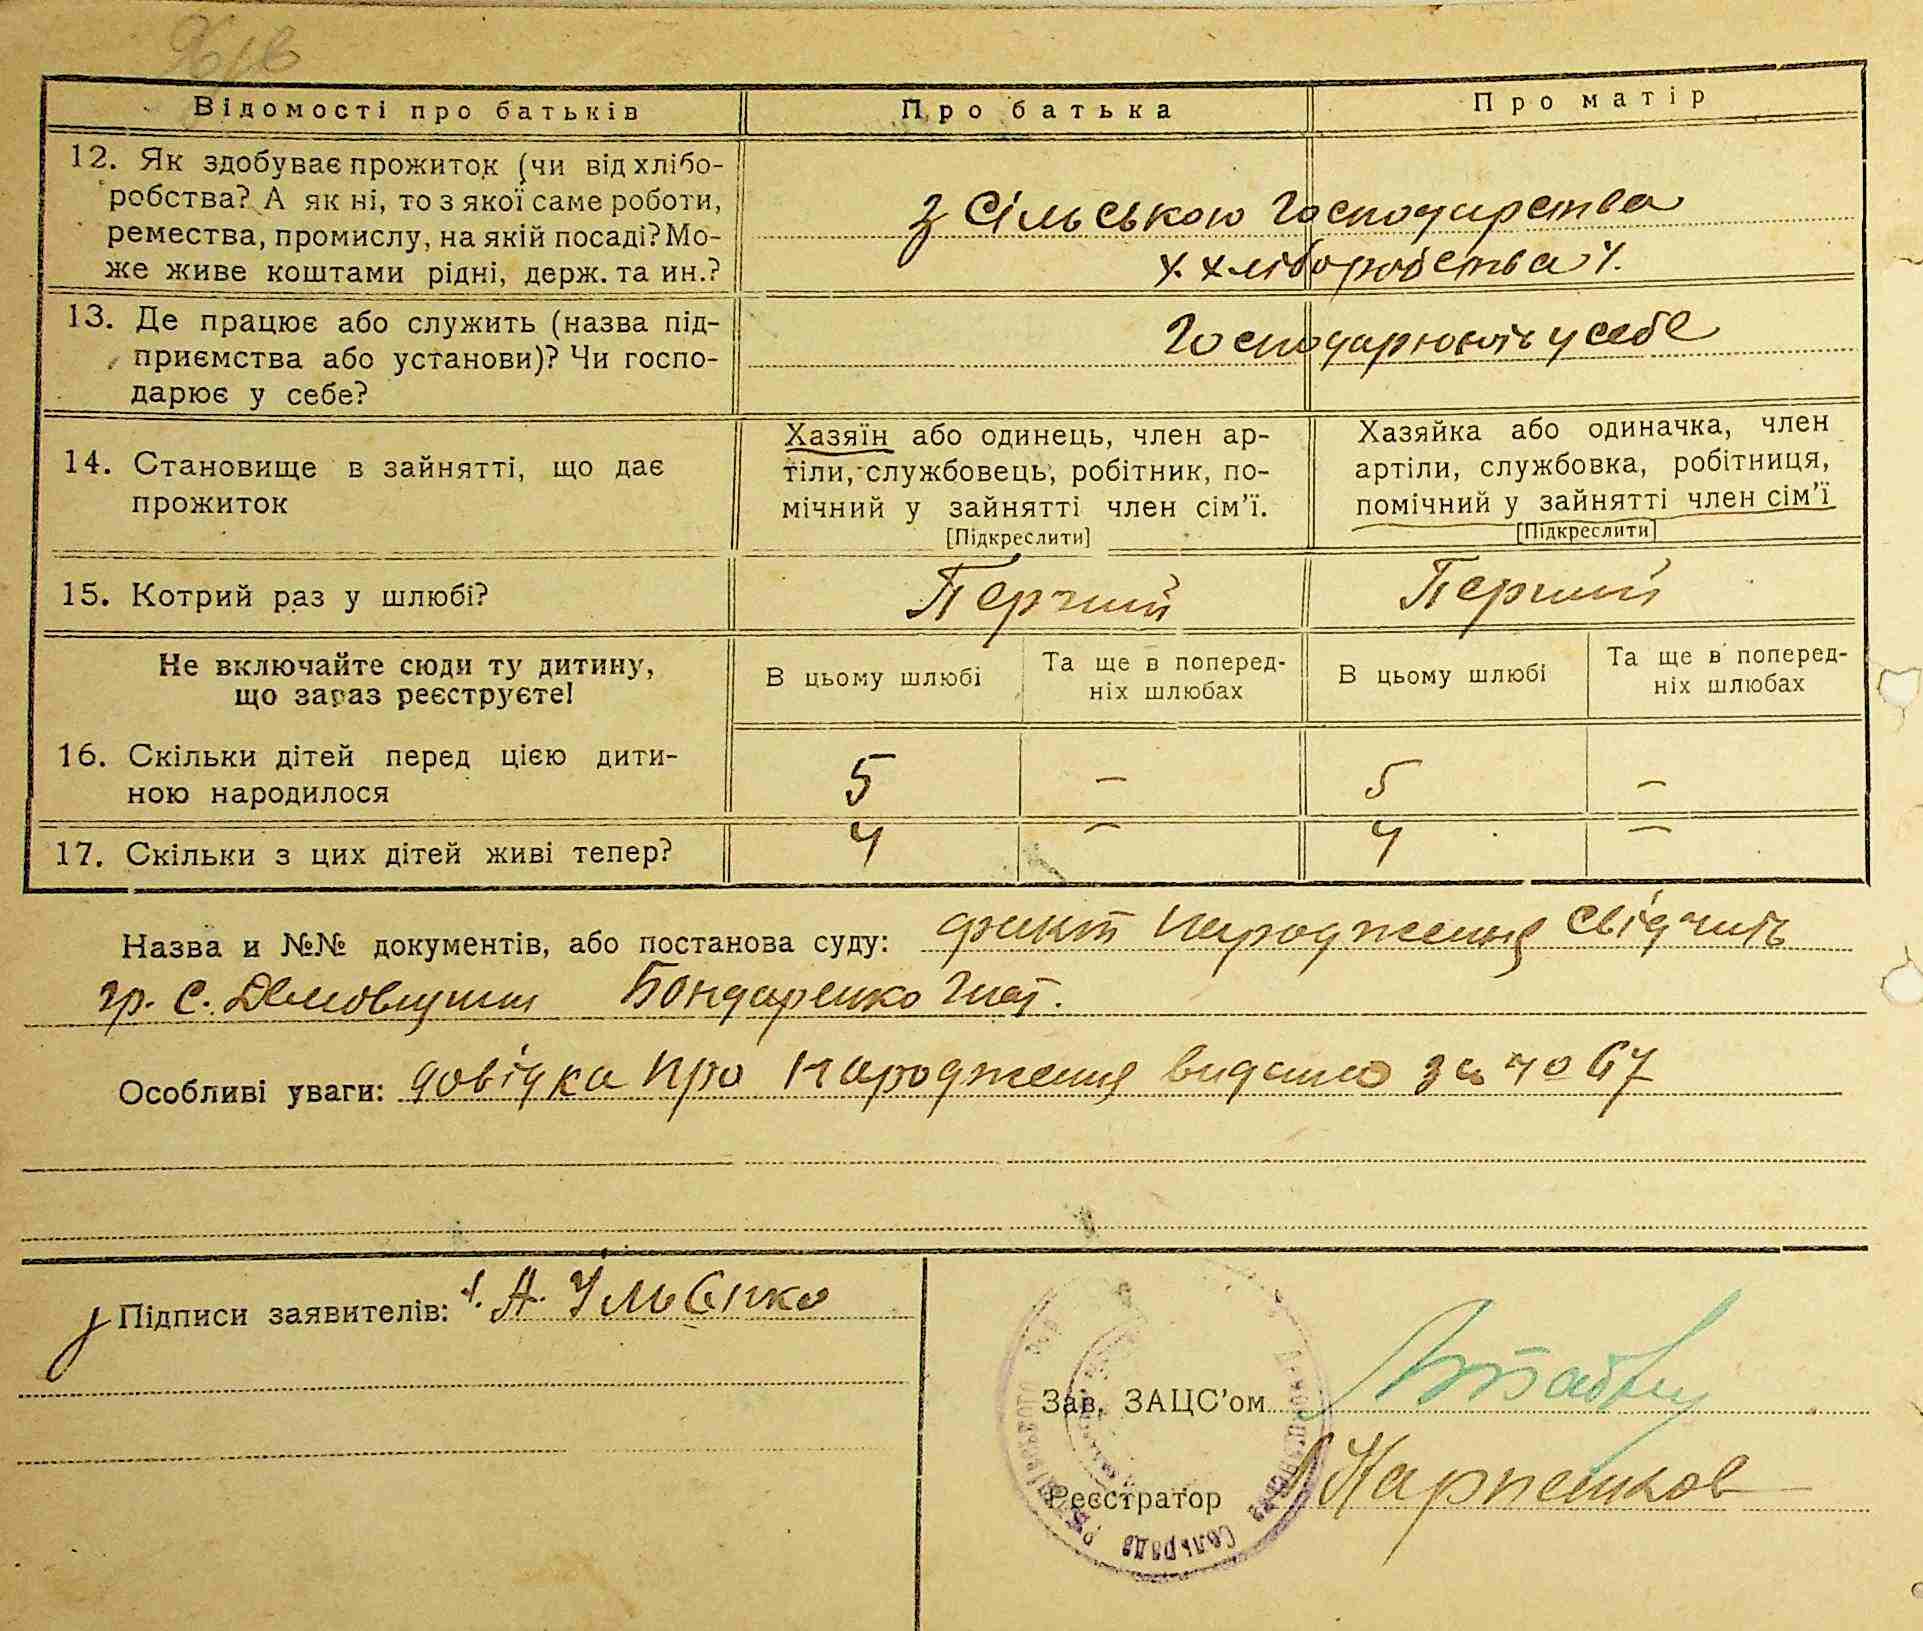 Відомості про батьків
Про батька
Про матір
12. Як здобуває прожиток (чи від хлібо-
робства? А як ні, то з якої саме роботи,
ремества, промислу, на якій посаді? Мо-
же живе коштами рідні, держ. та ин.?
З Сільською Господарства
хліборобства
13. Де працює або служить (назва під-
приємства або установи)? Чи госпо-
дарює у себе?
Господарюють у себе
14. Становище в зайнятті, що дає
прожиток
Хазяїн або одинець, член ар-
тіли, службовець, робітник, по-
мічний у зайнятті член сім'ї.
[Підкреслити]
Хазяйка або одиначка, член
артіли, службовка, робітниця,
помічний у зайнятті член сім'ї
[Підкреслити]
15. Котрий раз у шлюбі?
Перчий
Перший
Не включайте сюди ту дитину,
що зараз реєструєте!
В цьому шлюбі
Та ще в поперед-
ніх шлюбах
В цьому шлюбі
Та ще в поперед-
ніх шлюбах
16. Скільки дітей перед цією дити-
ною народилося
5 – 5 –
17. Скільки з цих дітей живі тепер?
4 – 4 –
Назва и №№ документів, або постанова суду: факт народження свідчить
гр. с. Бондаренко Гнат.
Особливі уваги: довідка про народження видано за № 67
Підписи заявителів: А. Ільєнко
Зав. ЗАЦС'ом
Реєстратор
Сельрада